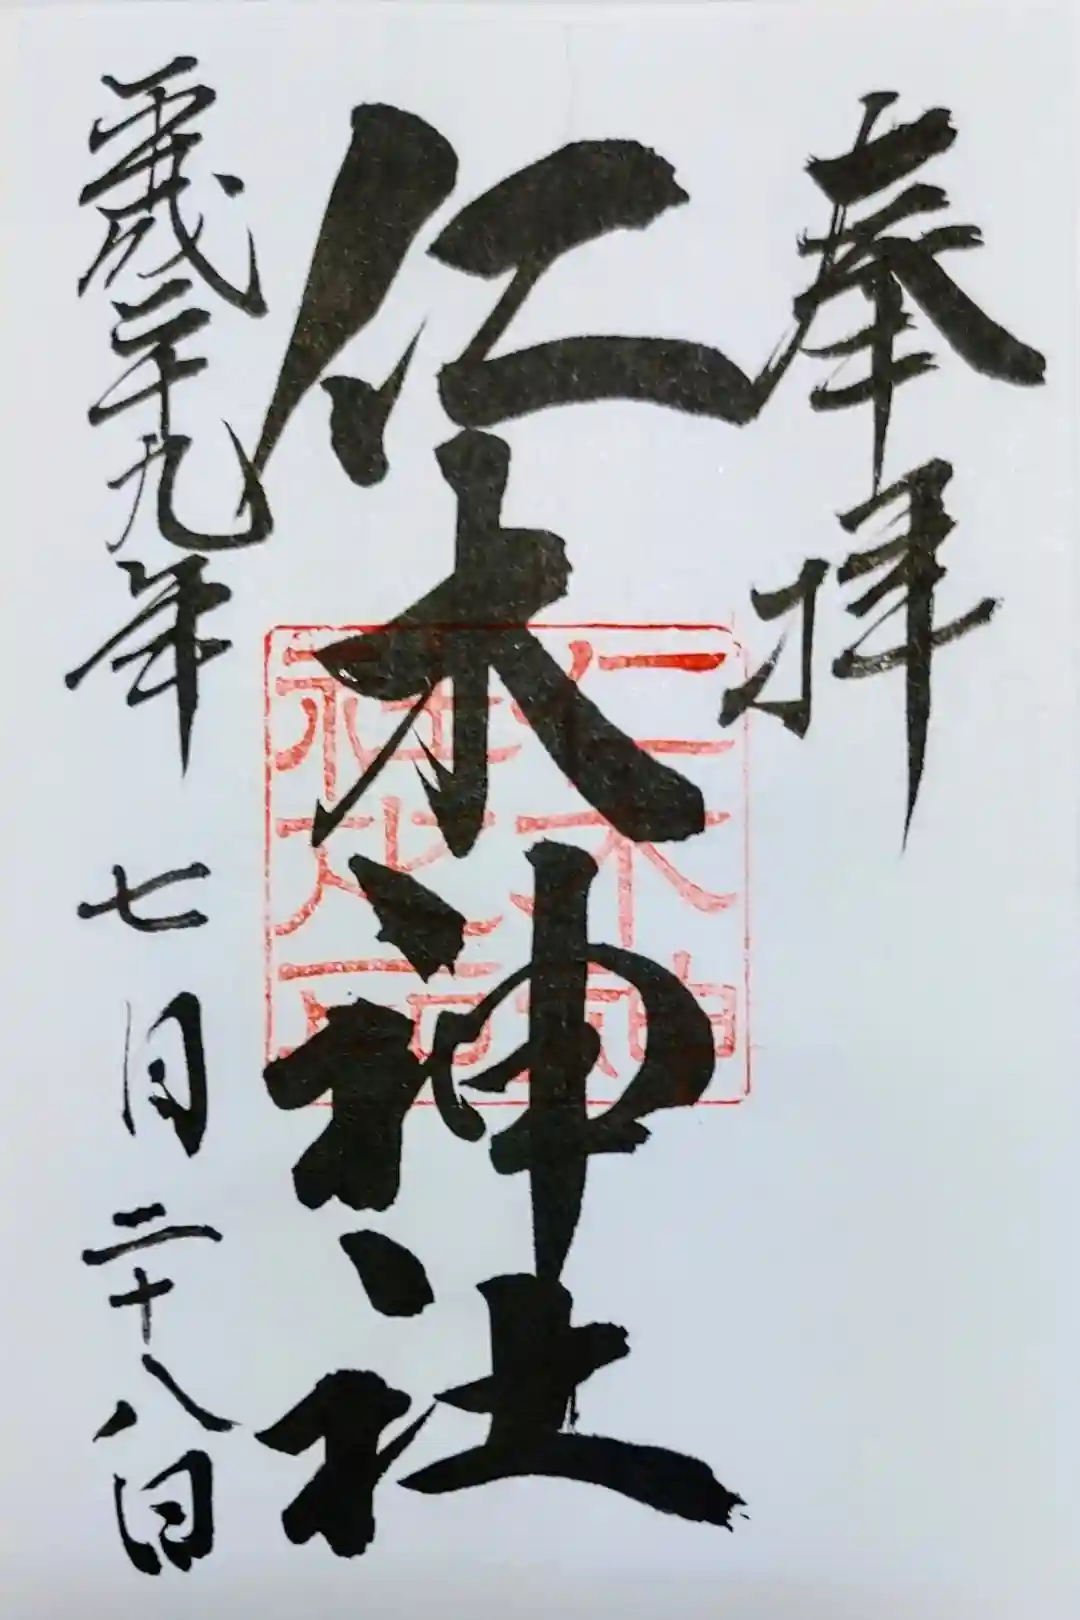 奉拝
仁木神社
平成二十九年 七月二十八日
仁木神
社之印